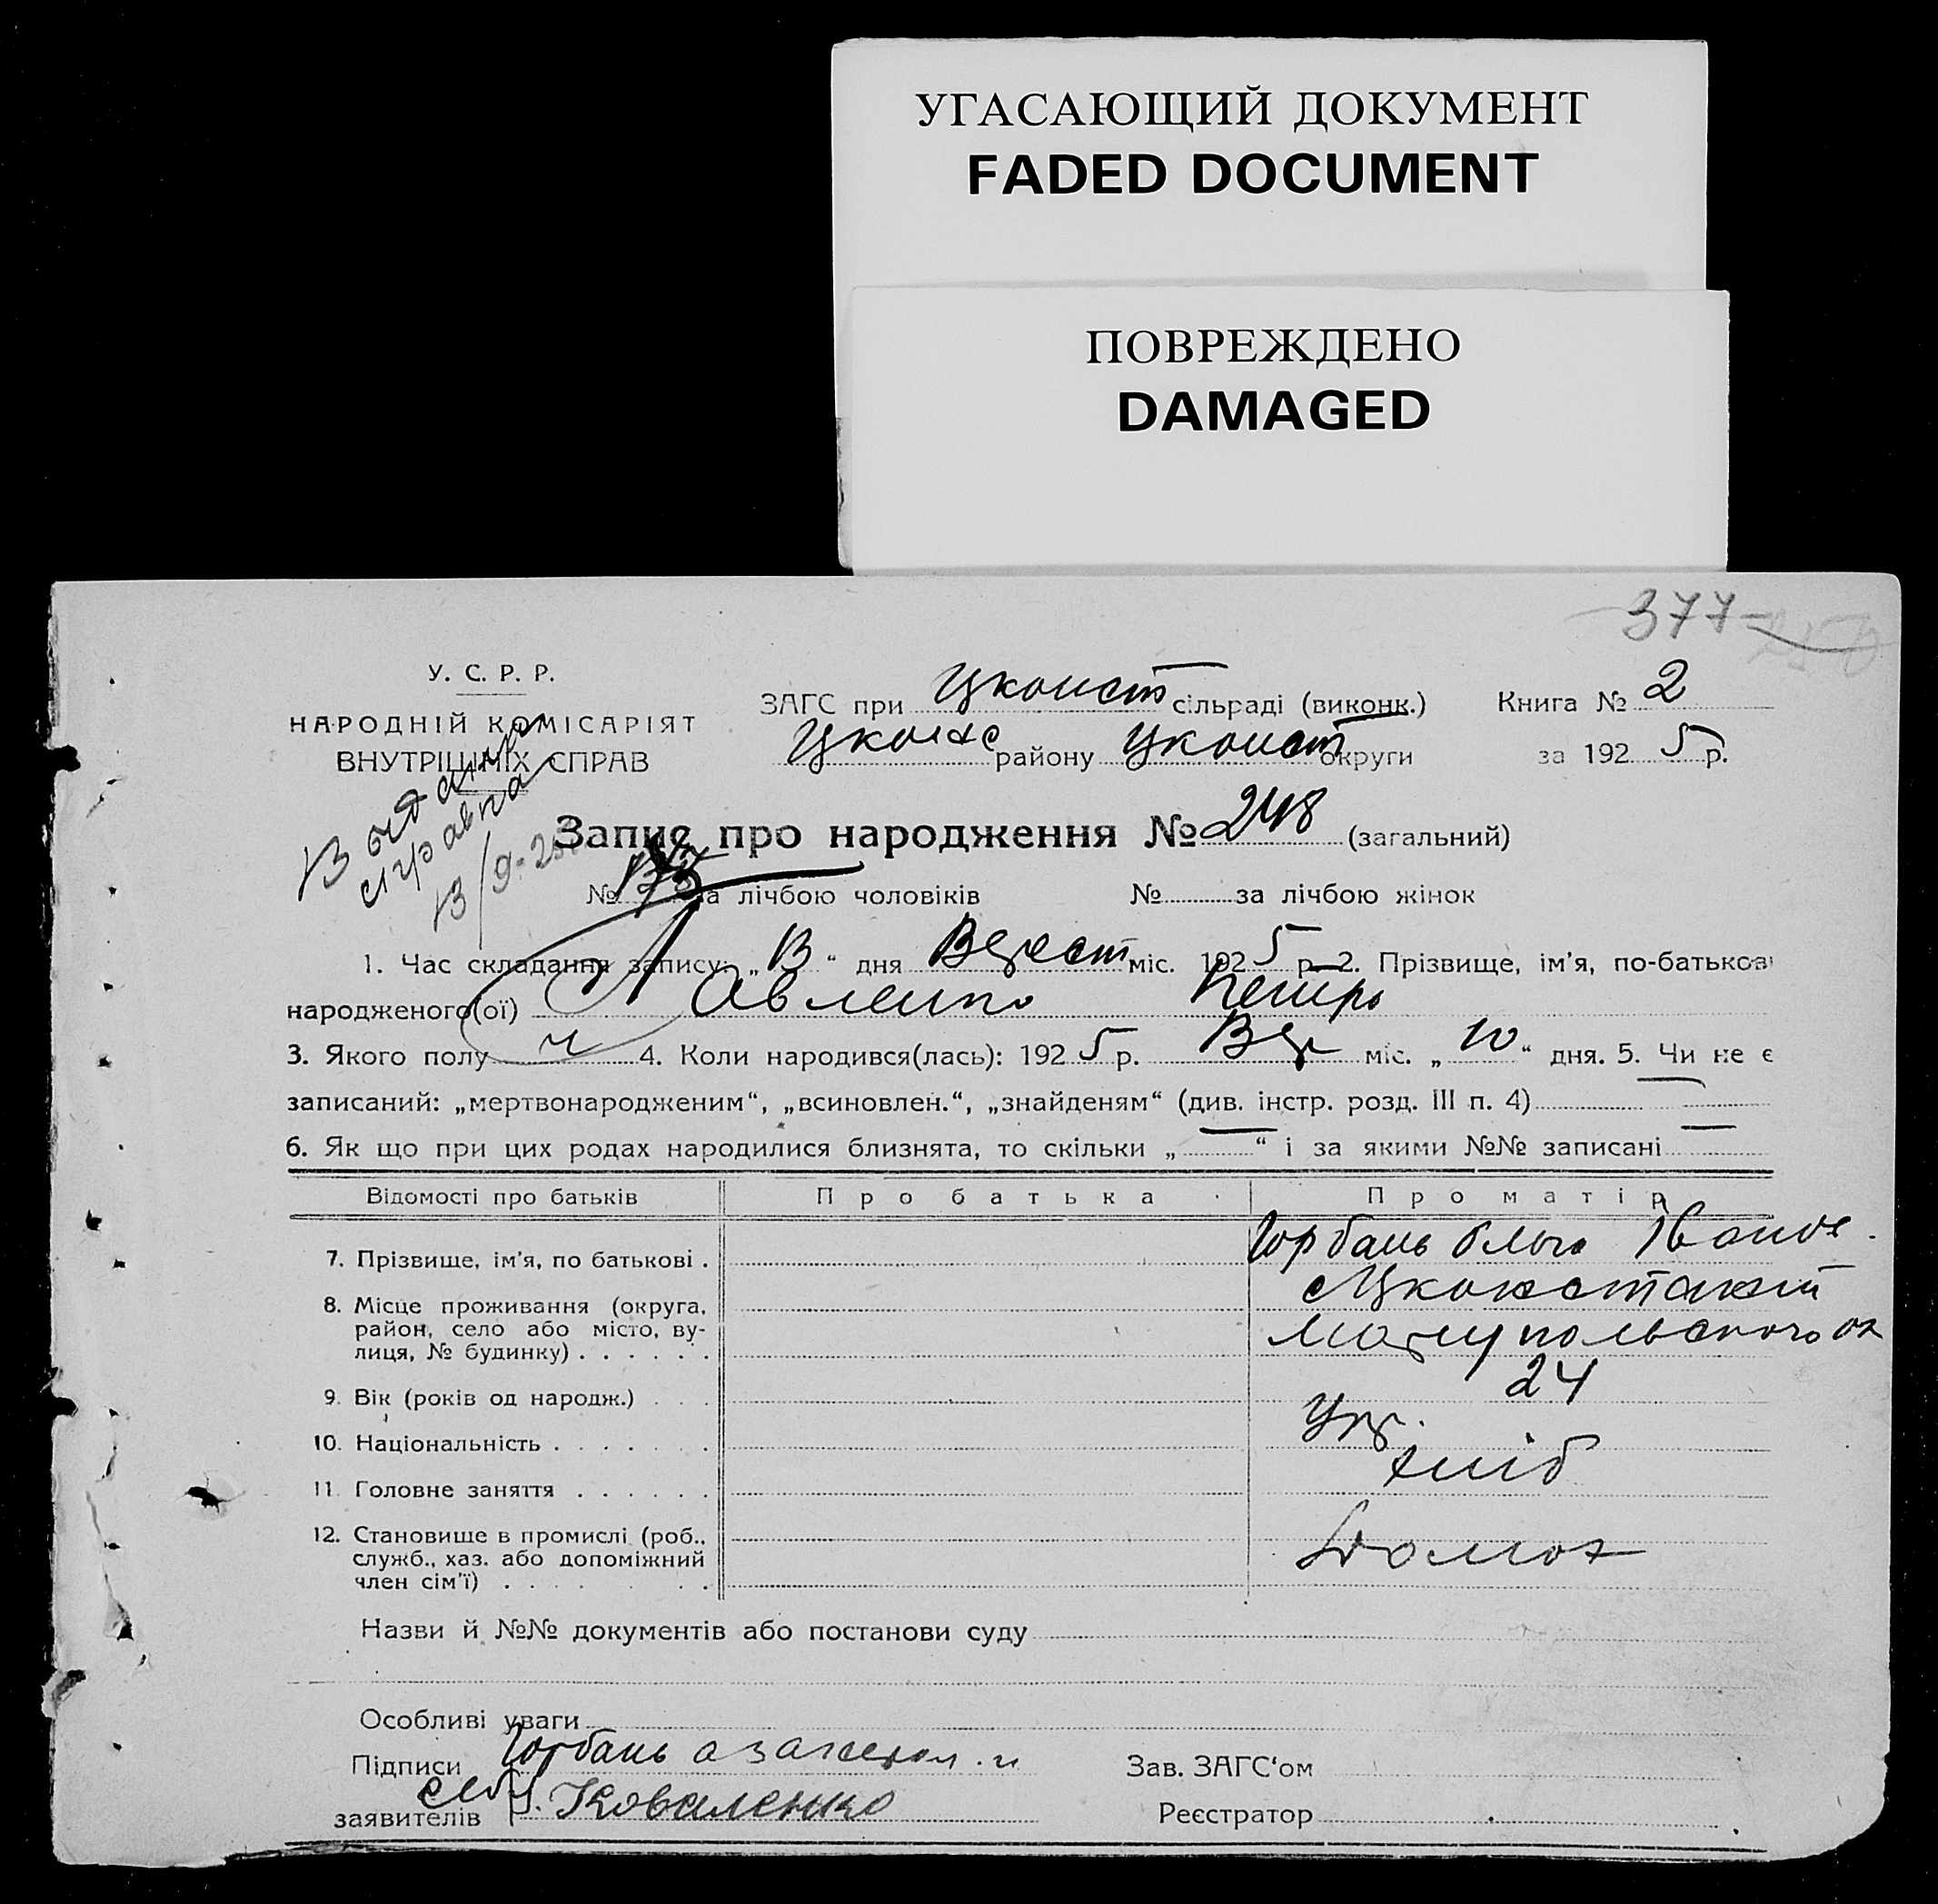 УГАСАЮЩИЙ ДОКУМЕНТ
FADED DOCUMENT
ПОВРЕЖДЕНО
DAMAGED
377
У. С. Р. Р.
НАРОДНІЙ КОМІСАРІЯТ
ВНУТРІШНІХ СПРАВ
ЗАГС при сільраді (виконк.) Книга № 2
району округи за 192 5 р.
Запис про народження № 248 (загальний)
№ за лічбою чоловіків № за лічбою жінок
13/9-25
1. Час складання запису: „ 13 “ дня Верест міс. 192 5 р. 2. Прізвище, ім'я, по-батькові
народженого(ої) Павленко Петро
3. Якого полу ч 4. Коли народився(лась): 192 5 р. Вер міс. „ 10 “ дня. 5. Чи не є
записаний: „мертвонародженим“, „всиновлен.“, „знайденям“ (див. інстр. розд. III п. 4) —
6. Як що при цих родах народилися близнята, то скільки „ — “ і за якими №№ записані —
Відомості про батьків Про батька Про матір
7. Прізвище, ім'я, по батькові . Горбань Ольга Іванов.
8. Місце проживання (округа,
район, село або місто, ву-
лиця, № будинку) . . . . . .
9. Вік (років од народж.) . . . 24
10. Національність . . . . . . . Укр.
11. Головне заняття . . . . . . хліб
12. Становище в промислі (роб.,
служб., хаз. або допоміжний
член сім'ї) . . . . . . .
Назви й №№ документів або постанови суду
Особливі уваги
Підписи Горбань а
заявителів Коваленко
Зав. ЗАГС'ом
Реєстратор